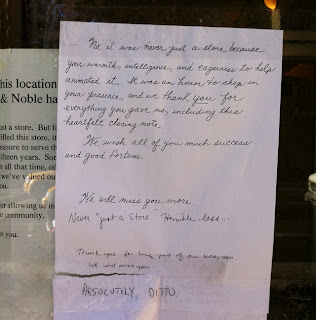 No, it was never just a store because
your warmth, intelligence, and eagerness to help
animated it. It was an honor, to shop in
your presence, and we thank you for
everything you gave us, including this
heartfelt closing note.
We wish all of you much success
and good fortune.
We will miss you more
Never "just a Store" Horrible loss...
Thank you for being part of our lives, too
We will miss you
ABSOLUTELY, DITTO
his location
& Noble ha
st a store. But f
filled this store, i
easure to serve th
fteen years. Som
n all that time, of
we've valued ou
ou.
er allowing us in
r community.
ss you.